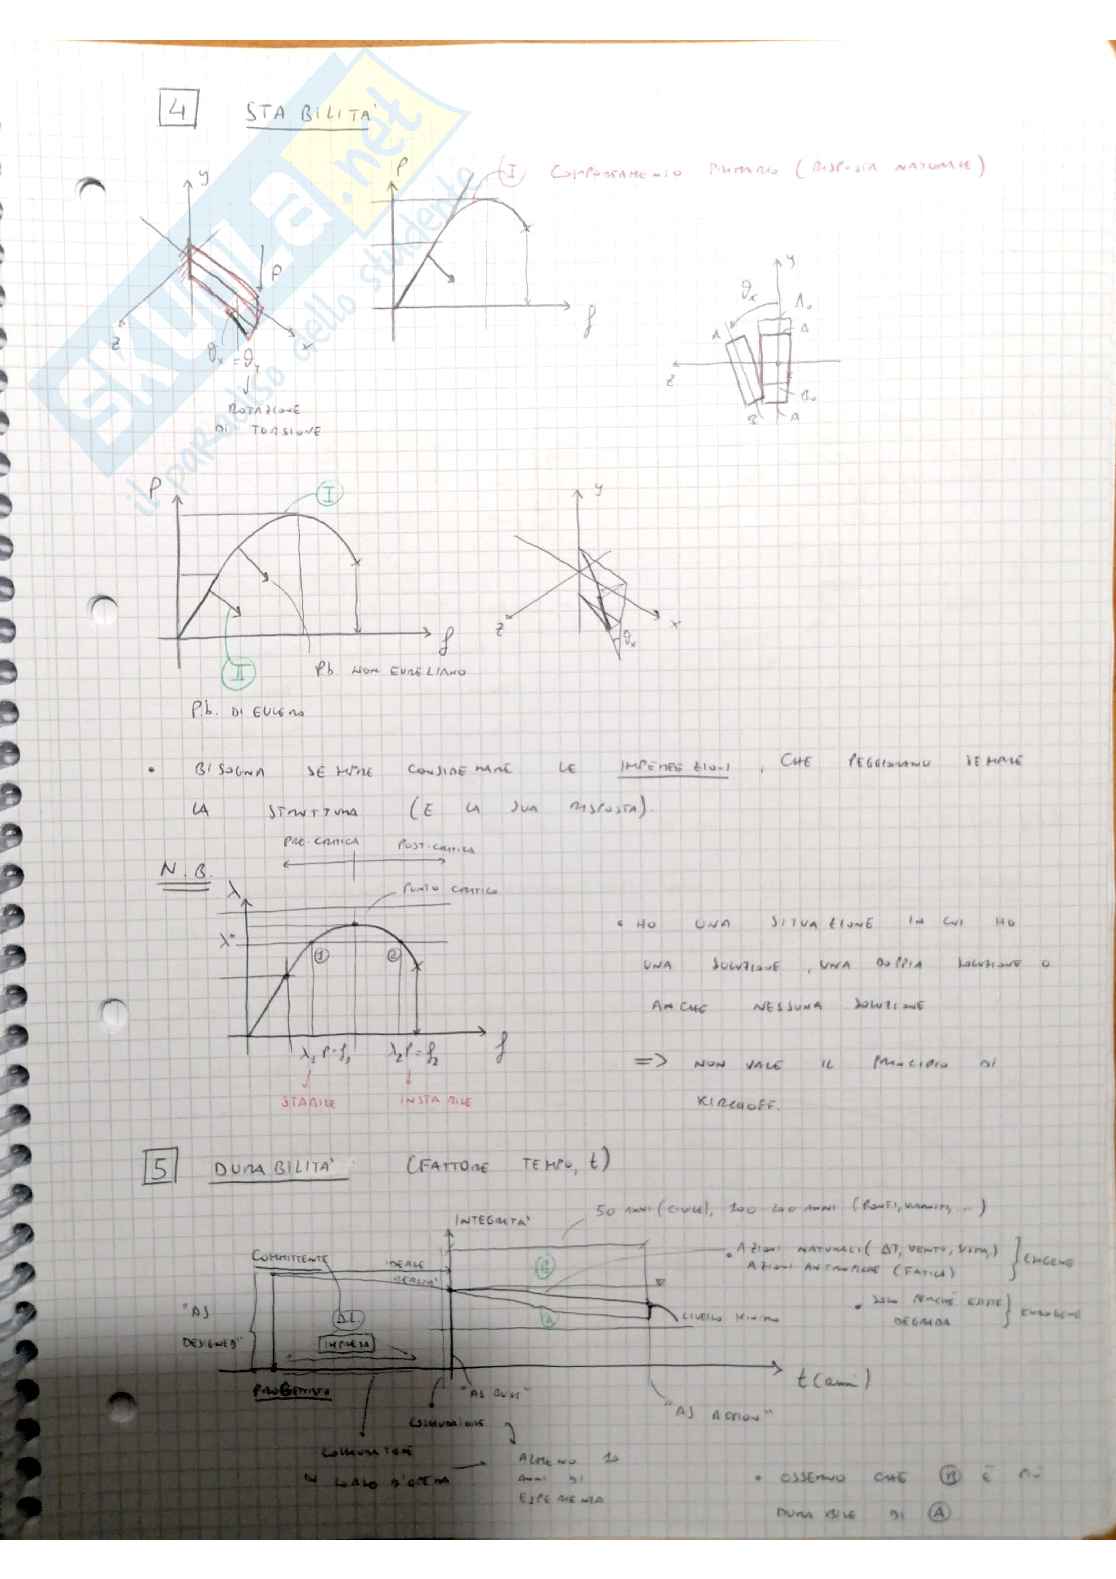 4 STABILITA'
P
I COMPORTAMENTO PRIMARIO (RISPOSTA NATURALE)
y
P
z
x
f
θx = θx
ROTAZIONE
DI TORSIONE
y
θx
A
A
z
B
B
SKUOLA.net
il paradiso dello studente
P
I
f
II
Pb. NON EULELIANO
Pb. DI EULERO
y
z
x
θx
• BISOGNA SEMPRE CONSIDERARE LE IMPERFEZIONI, CHE PEGGIORANO SEMPRE
LA STRUTTURA (E LA SUA RISPOSTA).
PRE-CRITICA POST-CRITICA
N.B.
λ
PUNTO CRITICO
λ*
1 2
f
λ1 P=f1 λ2 P=f2
STABILE INSTABILE
• HO UNA SITUAZIONE IN CUI HO
UNA SOLUZIONE, UNA DOPPIA SOLUZIONE O
ANCHE NESSUNA SOLUZIONE
=> NON VALE IL PRINCIPIO DI
KIRCHOFF.
5 DURABILITA' (FATTORE TEMPO, t)
INTEGRITA'
50 ANNI (CIVILE), 100 200 ANNI (PONTI,
COMMITTENTE
IDEALE
REALTA'
B
• AZIONI NATURALI (ΔT, VENTO,
AZIONI ANTROPICHE (FATICA)
ESOGENE
"AS
DESIGNED"
ΔI
IMPRESA
A
LIVELLO MINIMO
• SOLO PERCHÉ ESISTE
DEGRADA
ENDOGENE
t (anni)
PROGETTISTA
"AS BUILT"
"AS ACTION"
COLLAUDATORE
IN CORSO D'OPERA
ALMENO 10
ANNI DI
ESPERIENZA
• OSSERVO CHE B È PIÙ
DURABILE DI A